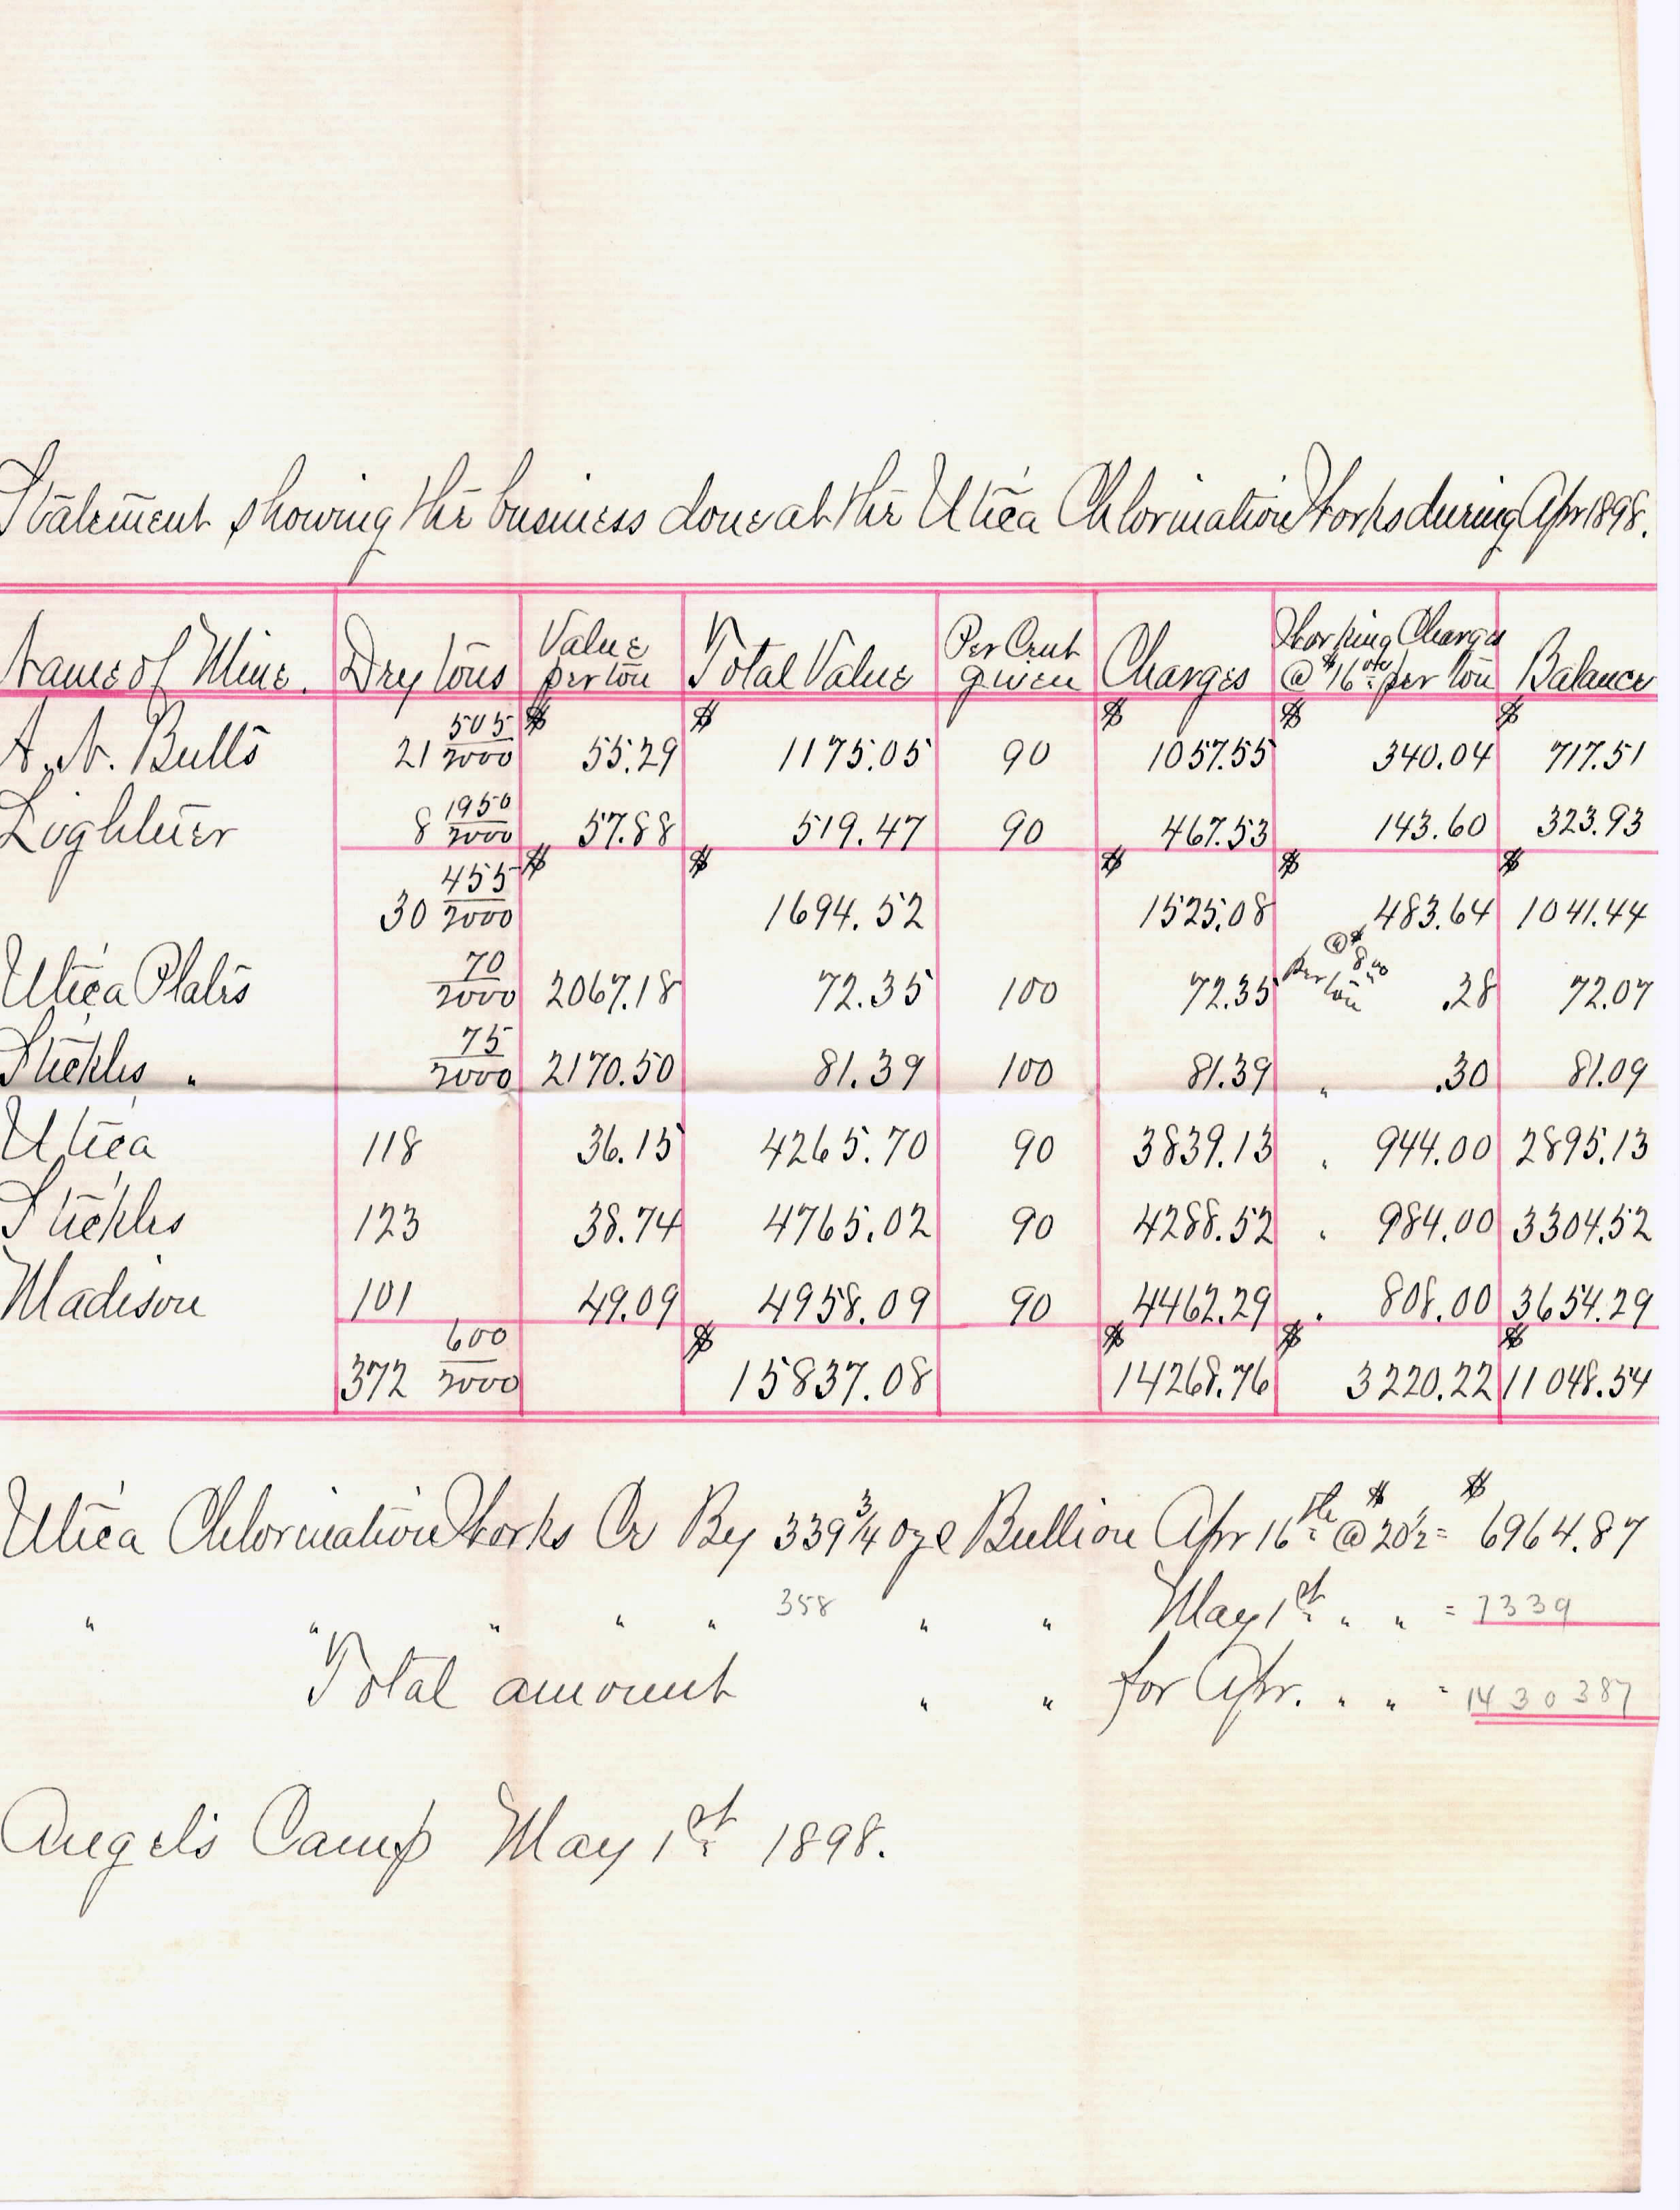 Statement showing the business done at the Utica Chlorination Works during Apr 1898.
Name of Mine. Dry tons Value per ton Total Value Per Cent given Charges Working Charges @ $16.00 per ton Balance
A. N. Butts 21 505/2000 $ 55.29 $ 1175.05 90 $ 1057.55 $ 340.04 $ 717.51
Lightner 8 1950/2000 57.88 519.47 90 467.53 143.60 323.93
30 455/2000 $ $ 1694.52 $ 1525.08 $ 483.64 $ 1041.44
Utica Plates 70/2000 2067.18 72.35 100 72.35 @ $8.00 per ton .28 72.07
Stickles " 75/2000 2170.50 81.39 100 81.39 " .30 81.09
Utica 118 36.15 4265.70 90 3839.13 " 944.00 2895.13
Stickles 123 38.74 4765.02 90 4288.52 " 984.00 3304.52
Madison 101 49.09 4958.09 90 4462.29 " 808.00 3654.29
372 600/2000 $ 15837.08 $ 14268.76 $ 3220.22 $ 11048.54
Utica Chlorination Works Cr By 339 3/4 ozs Bullion Apr 16th @ $20 1/2 = $ 6964.87
" " " " " 358 " " May 1st " " = 7339
Total amount " " for Apr. " " = 1430387
Angels Camp May 1st 1898.